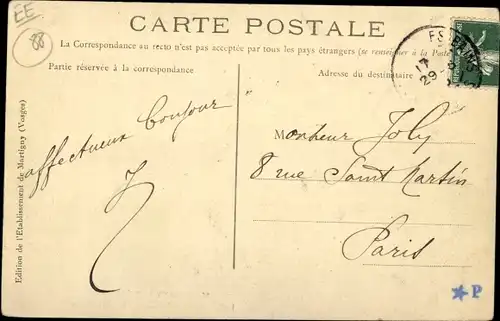 EE
88
CARTE POSTALE
La Correspondance au recto n'est pas acceptée par tous les pays étrangers (se renseigner à la Poste)
Partie réservée à la correspondance
Adresse du destinataire
17
29
affectueux bonjour
Monsieur Joly
8 rue Saint Martin
Paris
Edition de l'Etablissement de Martigny (Vosges)
★P